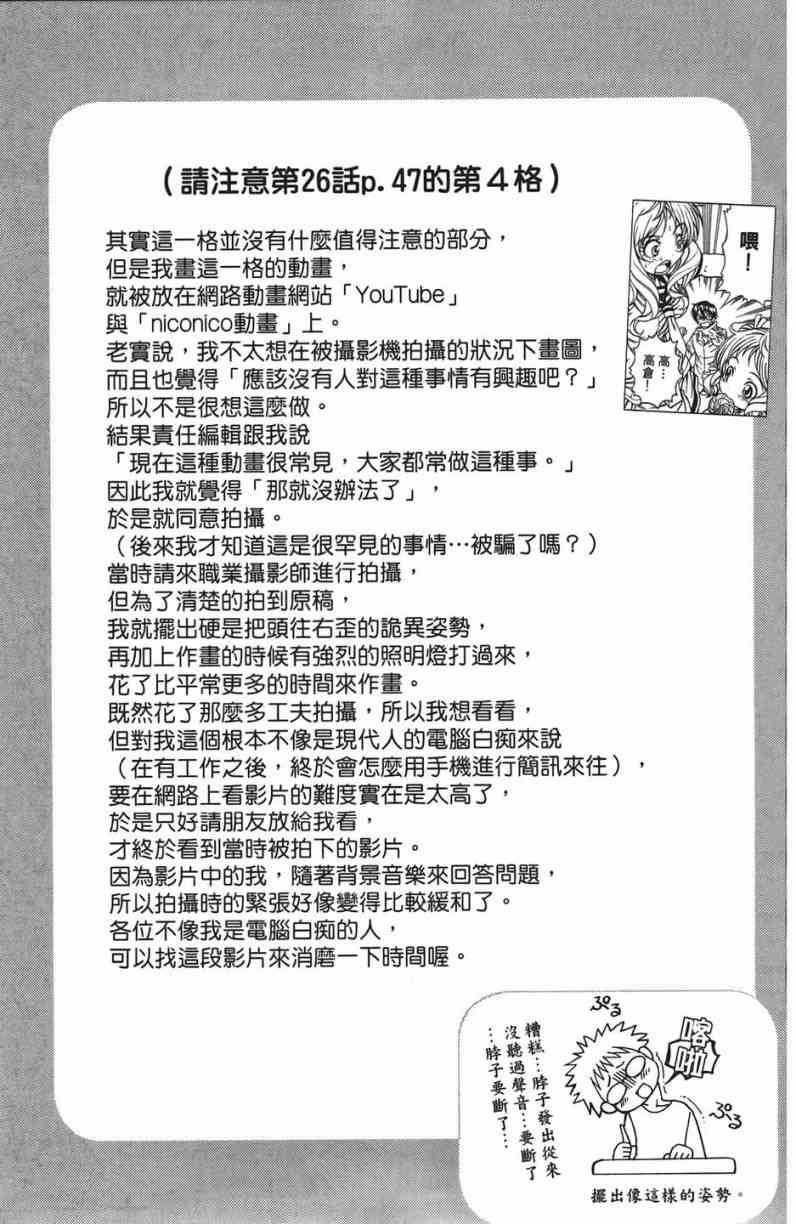 （請注意第26話p.47的第４格）
喂！
高…
高倉！
其實這一格並沒有什麼值得注意的部分，
但是我畫這一格的動畫，
就被放在網路動畫網站「YouTube」
與「niconico動畫」上。
老實說，我不太想在被攝影機拍攝的狀況下畫圖，
而且也覺得「應該沒有人對這種事情有興趣吧？」
所以不是很想這麼做。
結果責任編輯跟我說
「現在這種動畫很常見，大家都常做這種事。」
因此我就覺得「那就沒辦法了」，
於是就同意拍攝。
（後來我才知道這是很罕見的事情…被騙了嗎？）
當時請來職業攝影師進行拍攝，
但為了清楚的拍到原稿，
我就擺出硬是把頭往右歪的詭異姿勢，
再加上作畫的時候有強烈的照明燈打過來，
花了比平常更多的時間來作畫。
既然花了那麼多工夫拍攝，所以我想看看，
但對我這個根本不像是現代人的電腦白痴來說
（在有工作之後，終於會怎麼用手機進行簡訊來往），
要在網路上看影片的難度實在是太高了，
於是只好請朋友放給我看，
才終於看到當時被拍下的影片。
因為影片中的我，隨著背景音樂來回答問題，
所以拍攝時的緊張好像變得比較緩和了。
各位不像我是電腦白痴的人，
可以找這段影片來消磨一下時間喔。
ぷる
喀啦
ぷる
糟糕…脖子發出從來
沒聽過聲音…要斷了
…脖子要斷了…
擺出像這樣的姿勢。